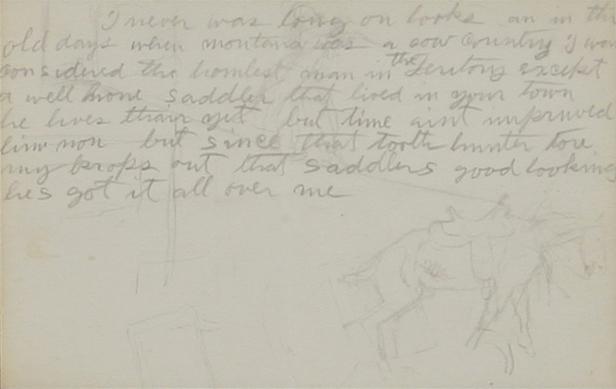 I never was long on looks an in the
old days when montana was a cow country I was
considered the homlest man in the Teritory except
a well know saddler that lived in your town
he lives thair yit but time aint impruved
him non but since that tooth hunter tore
my props out that saddlers good looking
hes got it all over me